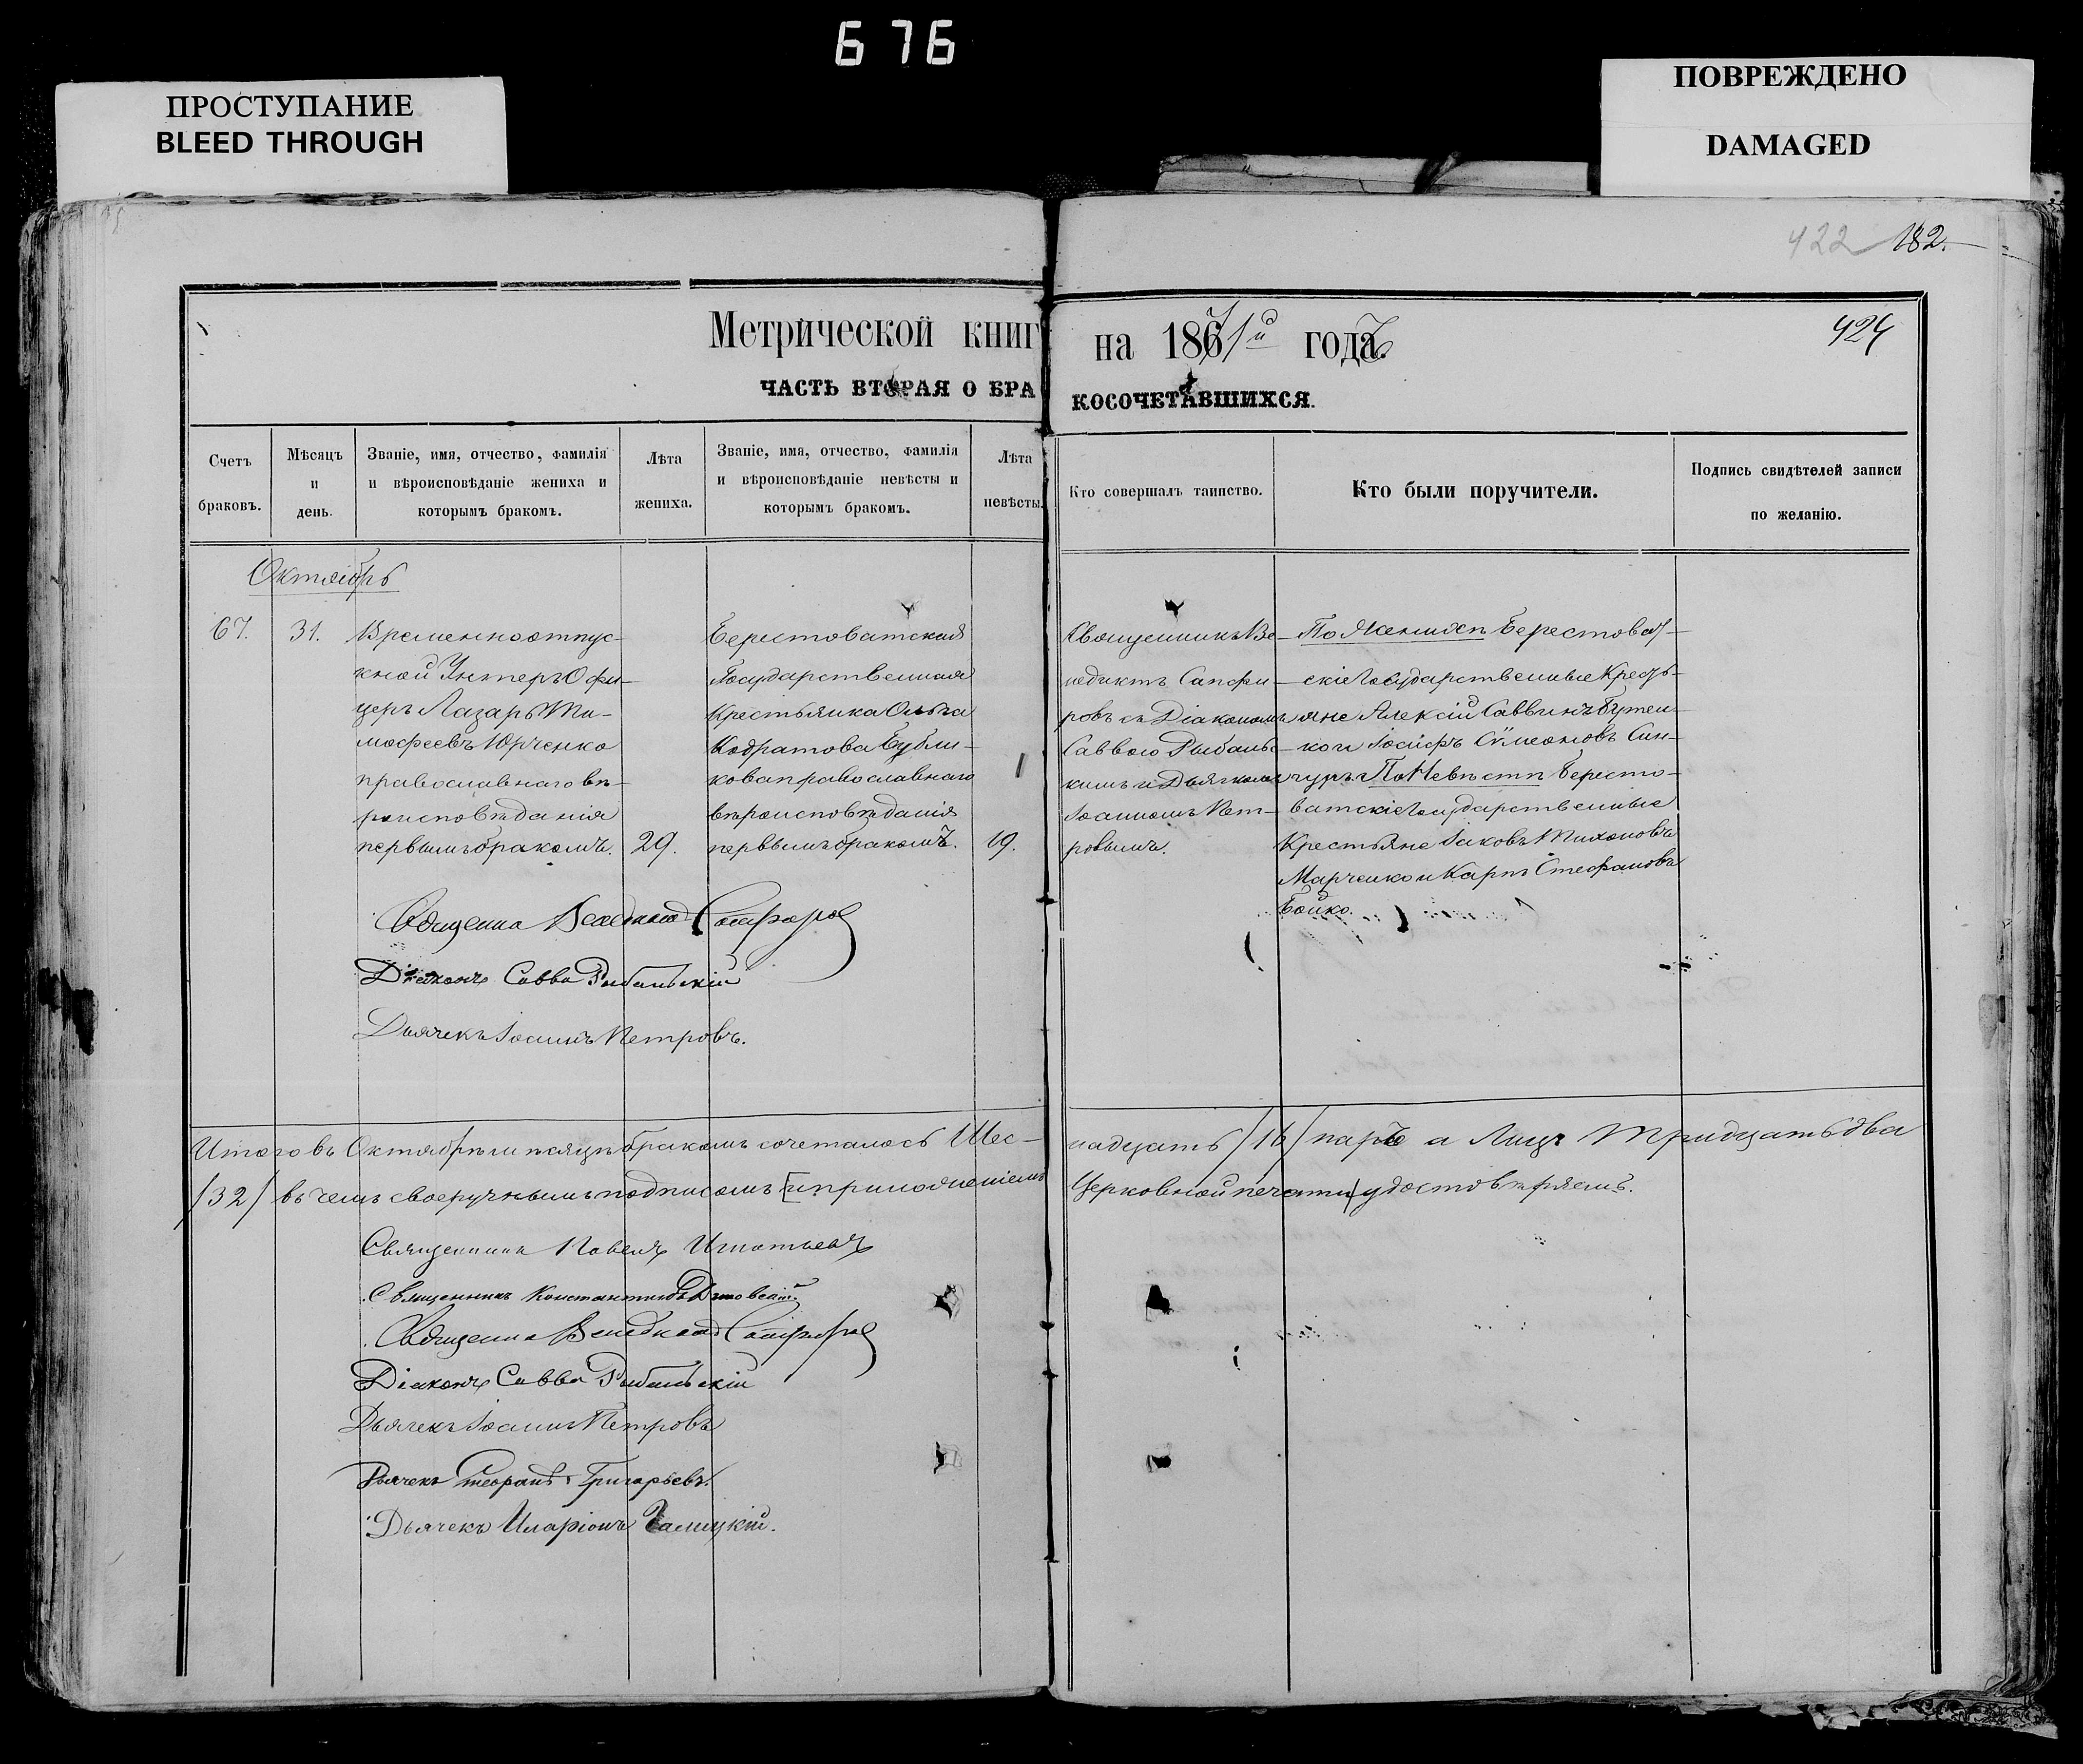 676
ПРОСТУПАНИЕ
BLEED THROUGH
ПОВРЕЖДЕНО
DAMAGED
422 182.
424
Метрической книг на 1871й годъ
ЧАСТЬ ВТОРАЯ О БРАКОСОЧЕТАВШИХСЯ.
Счетъ
браковъ.
Мѣсяцъ
и
день.
Званіе, имя, отчество, фамилія
и вѣроисповѣданіе жениха и
которымъ бракомъ.
Лѣта
жениха.
Званіе, имя, отчество, фамилія
и вѣроисповѣданіе невѣсты и
которымъ бракомъ.
Лѣта
невѣсты.
Кто совершалъ таинство.
Кто были поручители.
Подпись свидѣтелей записи
по желанію.
Октябрь
67.
31.
Временноотпус-
кной Унтеръ Офи-
церъ Лазарь Ти-
мофеевъ Юрченко
православнаго вѣ-
роисповѣданія
первымъ бракомъ.
29.
Берестоватская
Государственная
Крестьянка Ольга
Кодратова Бубли-
кова православнаго
вѣроисповѣданія
первымъ бракомъ.
19.
Священникъ Ве-
недиктъ Сапфи-
ровъ съ Діакономъ
Саввою Рыбаль-
кимъ и Дьячкомъ
Іоанномъ Пет-
ровымъ.
По Женихѣ Берестоват-
скіе Государственные Кресть-
яне Алексій Саввинъ Бутен-
ко и Іосифъ Сѵмеоновъ Син-
чукъ По Невѣстѣ Бересто-
ватскіе Государственные
Крестьяне Іаковъ Тихоновъ
Марченко и Карпъ Стефановъ
Бойко.
Священникъ Венедиктъ Сапфировъ
Діаконъ Савва Рыбальскій
Дьячекъ Іоаннъ Петровъ.
Итого въ Октябрѣ мѣсяцѣ бракомъ сочеталось Шес-надцать /16/ паръ а Лицъ Тридцать два
/32/ въ чемъ своеручнымъ подписомъ [и приложеніемъ Церковной печати] удостовѣряемъ.
Священникъ Павелъ Игнатьевъ
Священникъ Константинъ
Священникъ Венедиктъ Сапфировъ
Діаконъ Савва Рыбальскій
Дьячекъ Іоаннъ Петровъ
Дьячекъ Стефанъ Григорьевъ.
Дьячекъ Иларіонъ Галицкій.